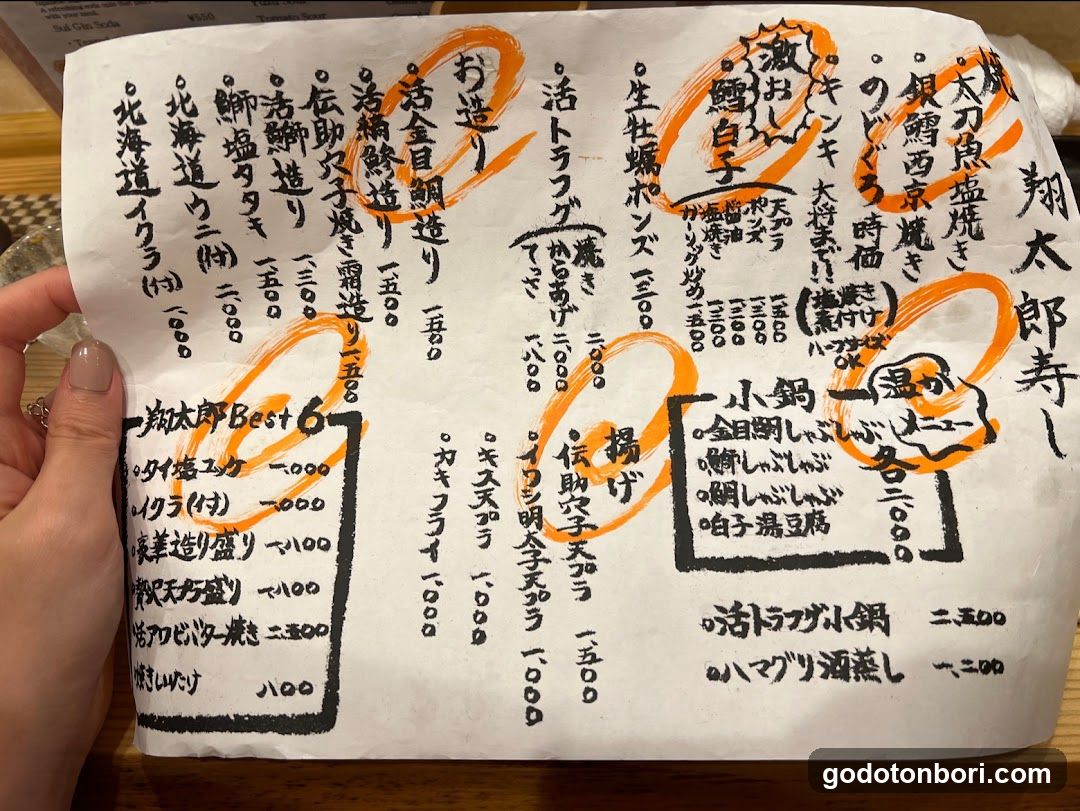 Sui Gin Soda
¥550
Tomato Sour
翔太郎寿し
焼
。太刀魚塩焼き
。銀鱈西京焼き
。のどぐろ時価
。キンキ 大将まで!!
(塩焼き
煮付け)
ハーフサイズ
OK
激おし
。鱈白子
天プラ 一、五〇〇
ポンズ 一、三〇〇
醤油 一、三〇〇
塩焼き 一、三〇〇
ガーリック炒め 一、五〇〇
。生牡蠣ポンズ 一、三〇〇
。活トラフグ
焼き 二、〇〇〇
からあげ 二、〇〇〇
てっさ 一、八〇〇
お造り
。活金目鯛造り 一、五〇〇
。活〆鯵造り 一、五〇〇
。伝助穴子焼き霜造り 一、五〇〇
。活鰤造り 一、三〇〇
。鰤塩タタキ 一、五〇〇
。北海道ウニ(付) 二、〇〇〇
。北海道イクラ(付) 一、〇〇〇
温か
メニュー
小鍋
各二、〇〇〇
。金目鯛しゃぶしゃぶ
。鰤しゃぶしゃぶ
。鯛しゃぶしゃぶ
。白子湯豆腐
。活トラフグ小鍋 二、五〇〇
。ハマグリ酒蒸し 一、二〇〇
揚げ
。伝助穴子天プラ 一、五〇〇
。イワシ明太子天プラ 一、〇〇〇
。キス天プラ 一、〇〇〇
。カキフライ 一、〇〇〇
翔太郎Best6
。タイ塩ユッケ 一、〇〇〇
。イクラ(付) 一、〇〇〇
。豪華造り盛り 一、八〇〇
。贅沢天プラ盛り 一、八〇〇
。活アワビバター焼き 二、五〇〇
。焼きしいたけ 八〇〇
godotonbori.com